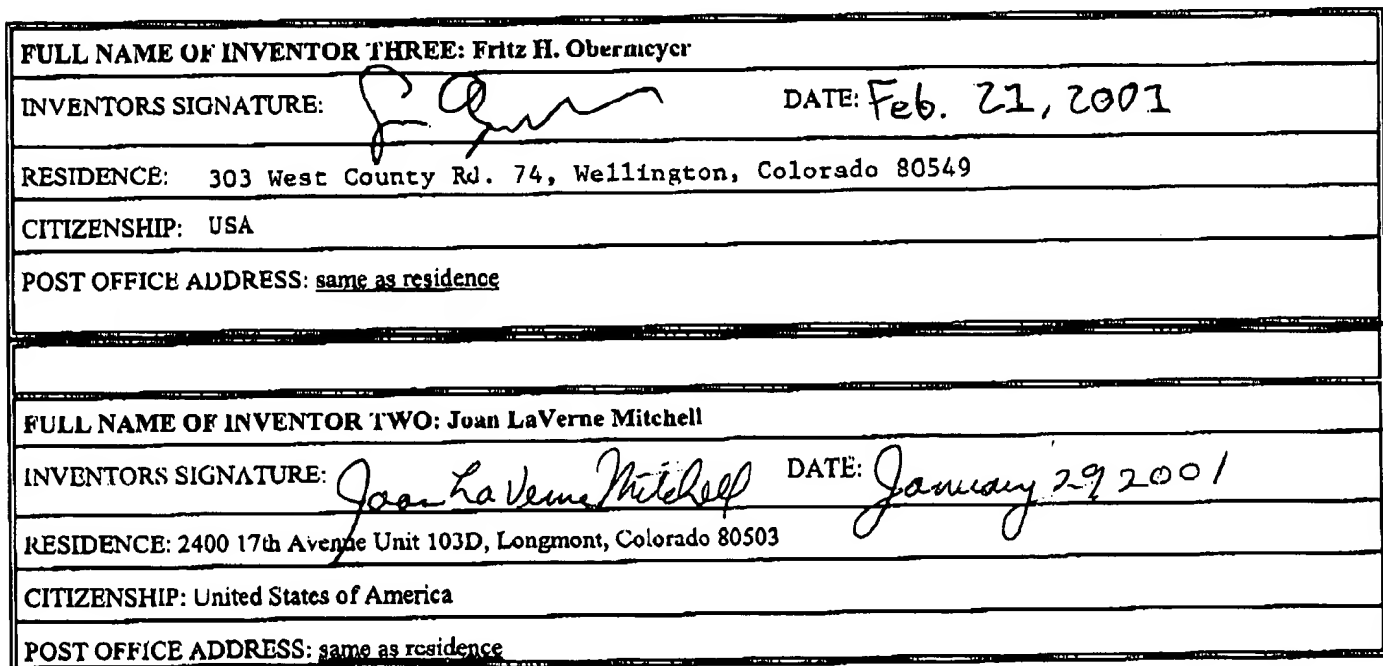 FULL NAME OF INVENTOR THREE: Fritz H. Obermeyer
INVENTORS SIGNATURE: DATE: Feb. 21, 2001
RESIDENCE: 303 West County Rd. 74, Wellington, Colorado 80549
CITIZENSHIP: USA
POST OFFICE ADDRESS: same as residence
FULL NAME OF INVENTOR TWO: Joan LaVerne Mitchell
INVENTORS SIGNATURE: Joan LaVerne Mitchell DATE: January 29 2001
RESIDENCE: 2400 17th Avenue Unit 103D, Longmont, Colorado 80503
CITIZENSHIP: United States of America
POST OFFICE ADDRESS: same as residence